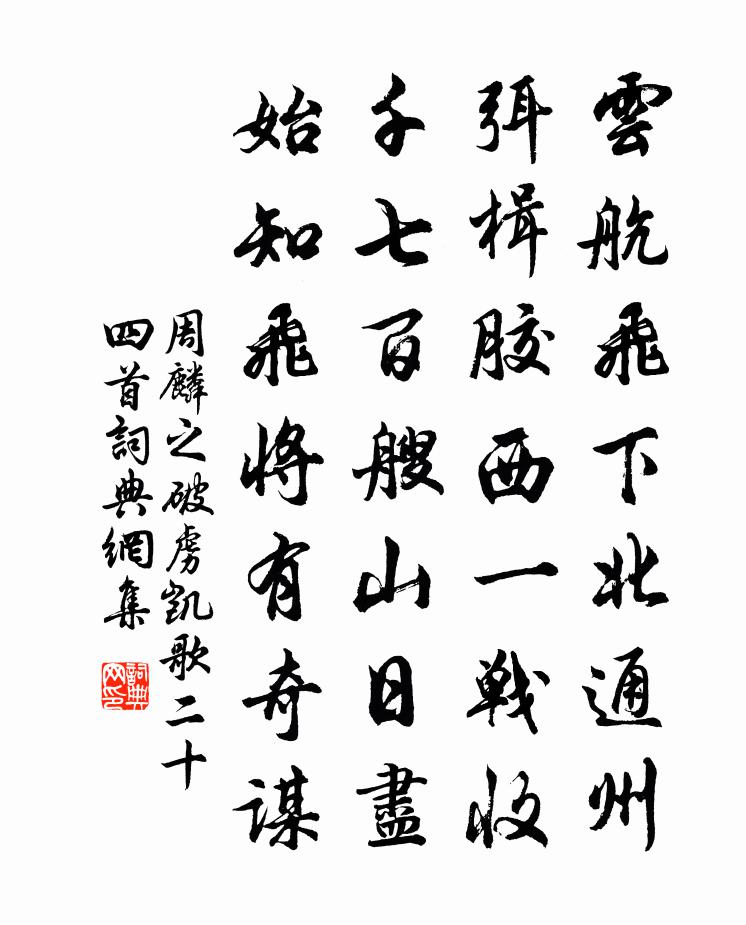 雲航飛下北通州
弭楫膠西一戰收
千七百艘山日盡
始知飛將有奇謀
周麟之破虜凱歌二十
四首詞典網集
詞典网印